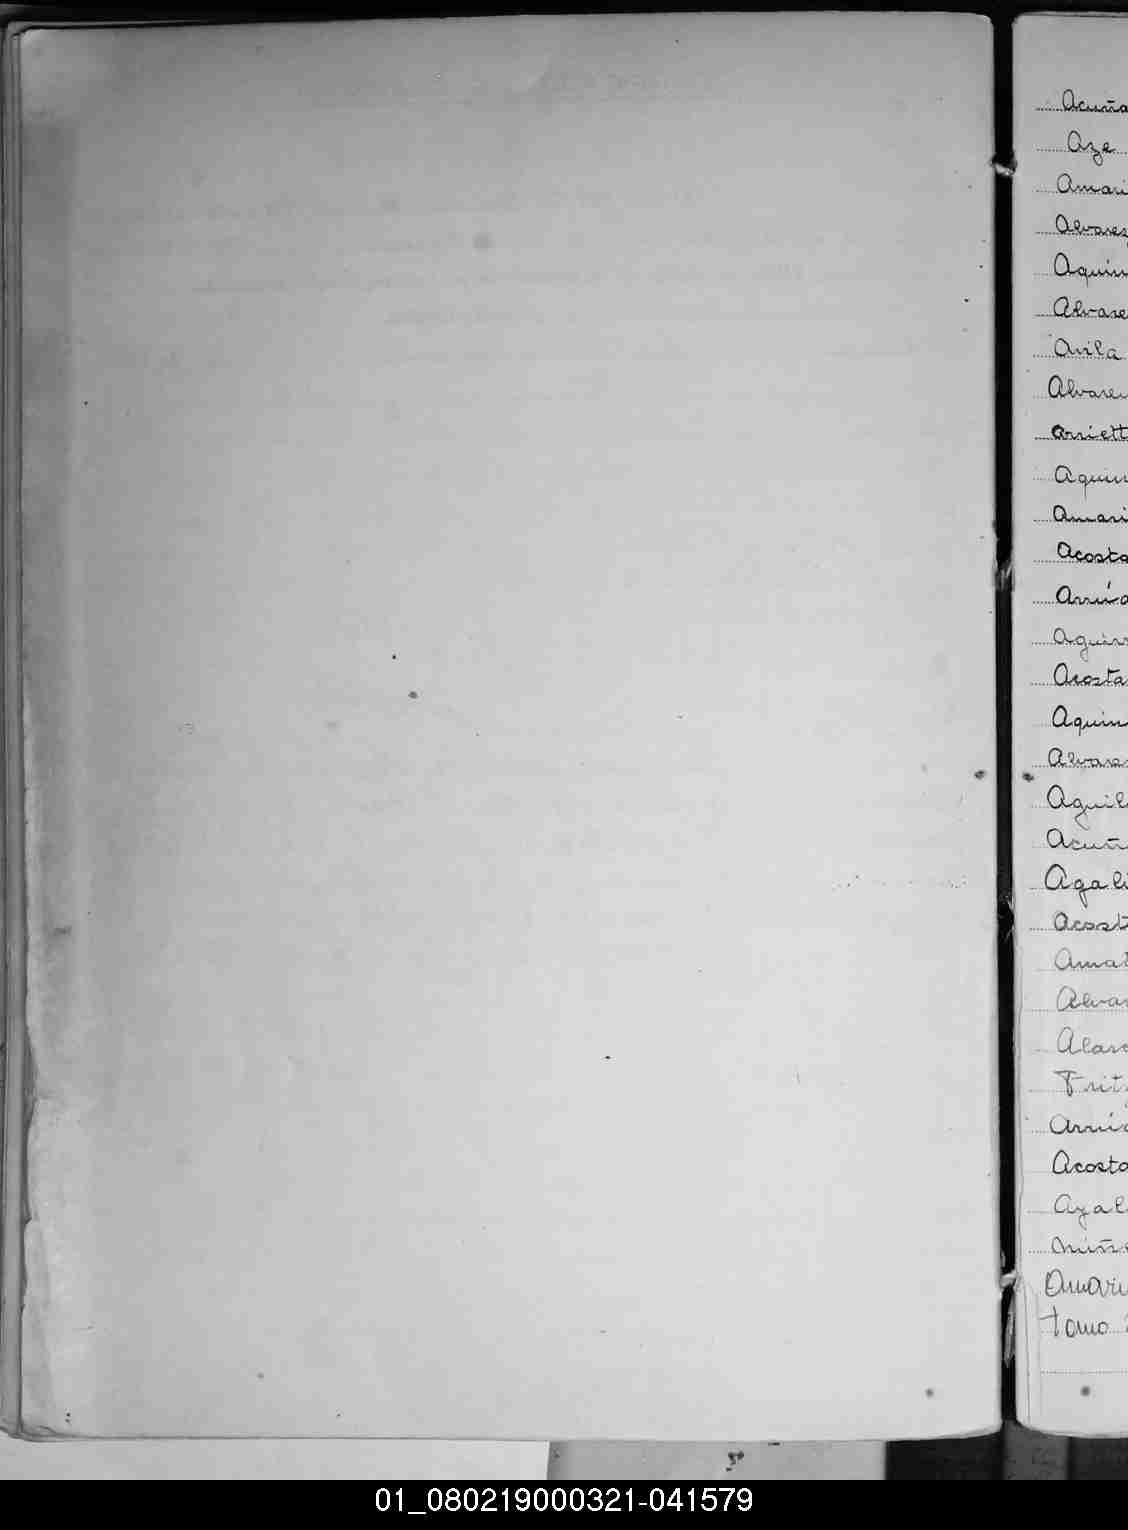 Acuña
Aze
Amari
Alvarez
Aquin
Alvare
Avila
Alvare
Arriett
Aquin
Amari
Acosta
Arrúa
Aguirr
Acosta
Aquin
Alvare
Aguil
Acuñ
Agali
Acost
Amat
Alvar
Alarc
Fritz
Arrúa
Acosta
Ayal
Amari
tomo
01_080219000321-041579